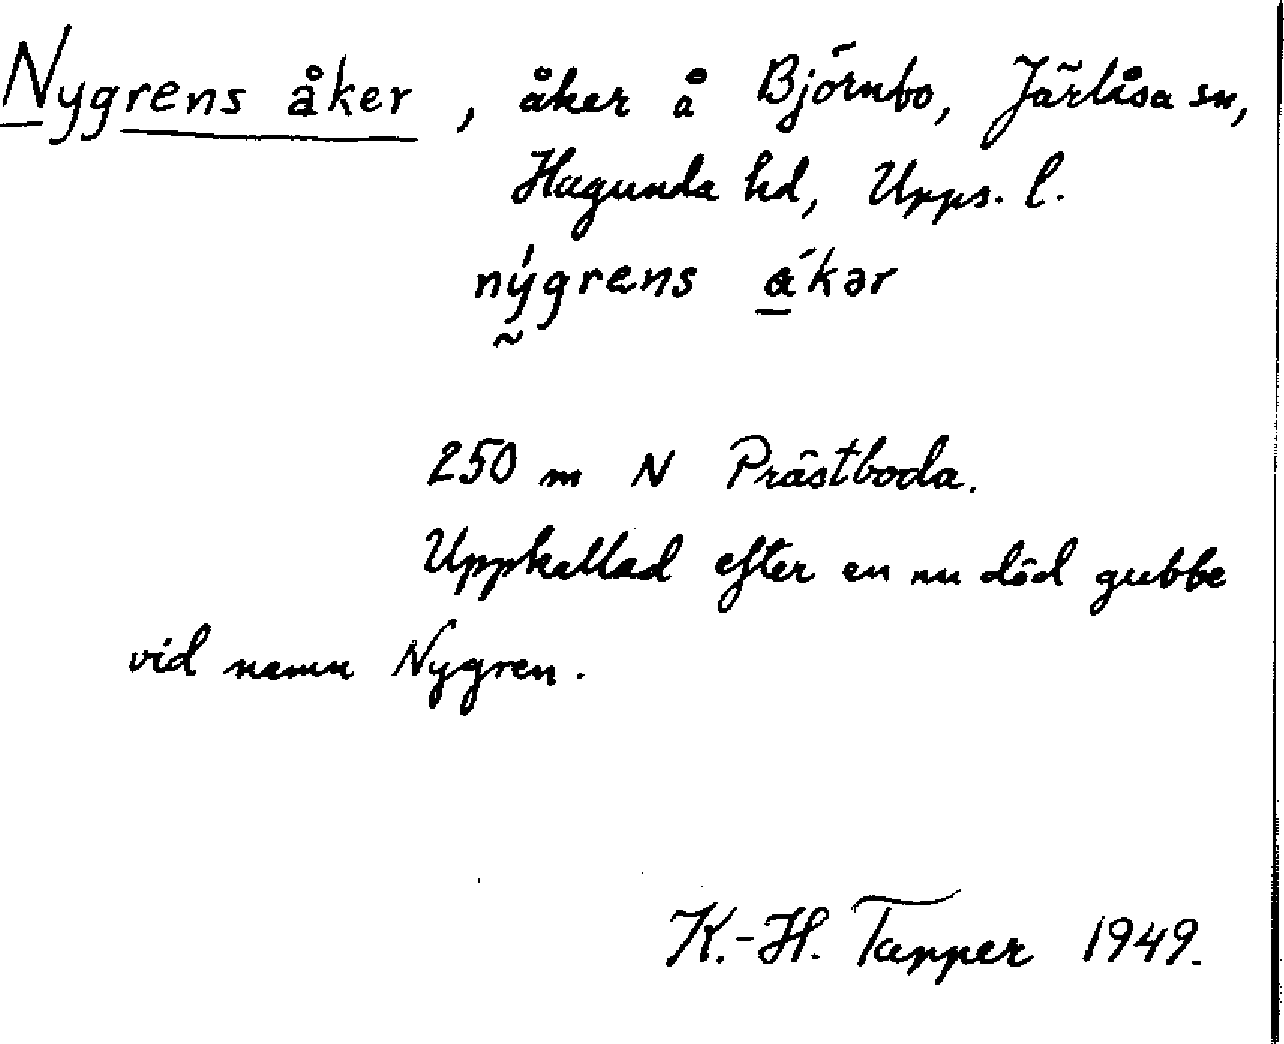 Nygrens åker, åker å Björnbo, Järlåsa sn,
Hagunda hd, Upps. l.
nýgrens ákər
250 m N Prästboda.
Uppkallad efter en nu död gubbe
vid namn Nygren.
K.-H. Tapper 1949.